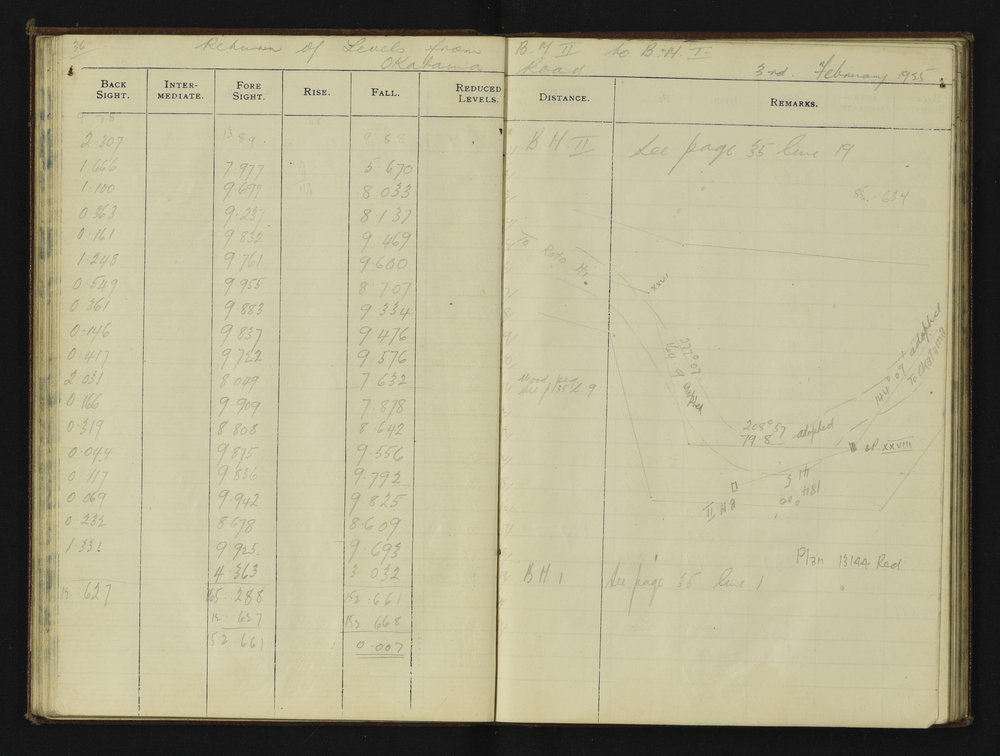 36 Return of Levels from B.M II to B.M. I.
Okatama Road 3rd. February 1935
BACK SIGHT. INTER-MEDIATE. FORE SIGHT. RISE. FALL. REDUCED LEVELS. DISTANCE. REMARKS.
2.307 B M II See page 35 line 19
1.666 7.977 5.670
1.100 9.699 8 033 634
0.363 9.237 8 137
0.161 9 832 9 469
1.248 9.761 9.600 To Roto Hi.
0.549 9 955 8 707 XXVI
0.361 9 883 9 334
0.146 9 837 9 476
0.417 9 722 9 576
2 031 8 049 7 632
0 166 9 909 7.878
0.319 8 808 8.642
0.044 9 875 9.556
0.117 9 836 9.792
0 069 9.942 9 825
0.232 8.678 8.609
1.332 9 925 9.693
4.363 3 032 B M 1 See page 35 line 1
12.627 165.288 152.661
12.627 152 668
152 661 0.007
272° 07
164 9 adopted
208° 57 adopted
79.8
144° 09 adopted
To Okatama
SP XXVIII
II M B
Plan 13144 Red